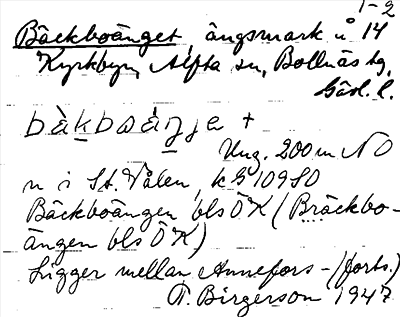 1-2
Bäckboänget, ängsmark å 14
Kyrkbyn, Alfta sn, Bollnäs tg,
Gävl. l.
bàkboáŋje +
Ung. 200 m NO
n i St. Vålen, k G 109 SO
Bäckboängen bls ÖK (Bräckbo-
ängen bls ÖK)
Ligger mellan Annefors- (forts.)
T. Birgerson 1947